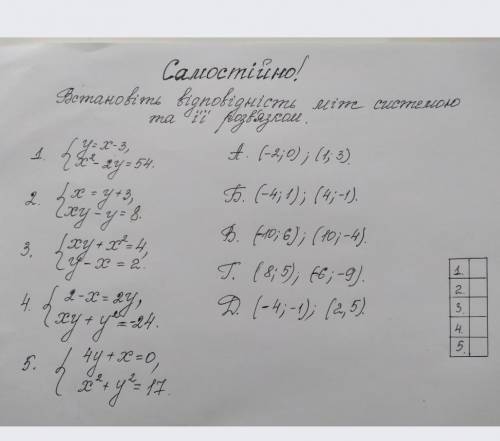 Самостійно!
Встановіть відповідність між системою
та її розв'язком.
1. { y = x - 3,
x² - 2y = 54.
2. { x = y + 3,
xy - y = 8.
3. { xy + x² = 4,
y - x = 2.
4. { 2 - x = 2y,
xy + y² = -24.
5. { 4y + x = 0,
x² + y² = 17.
А. (-2; 0); (1; 3).
Б. (-4; 1); (4; -1).
В. (-10; 6); (10; -4).
Г. (8; 5), (-6; -9).
Д. (-4; -1); (2, 5).
1.
2.
3.
4.
5.